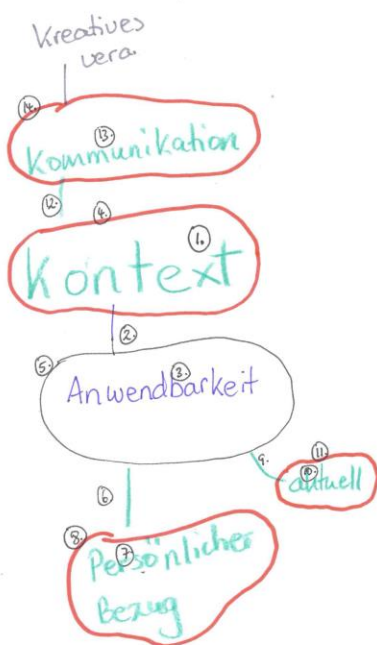 Kreatives
vera.
14.
13.
Kommunikation
12.
4.
1.
Kontext
2.
5.
3.
Anwendbarkeit
9.
11.
10.
aktuell
6.
8.
7.
Persönlicher
Bezug